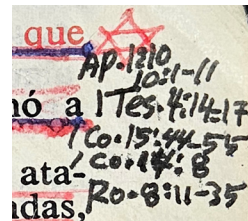 que
AP.1:10
10:1-11
nó a 1 Tes.4:14-17
1 Co.15:44-55
ata- 1 Co.14:8
das, Ro.8:11-35